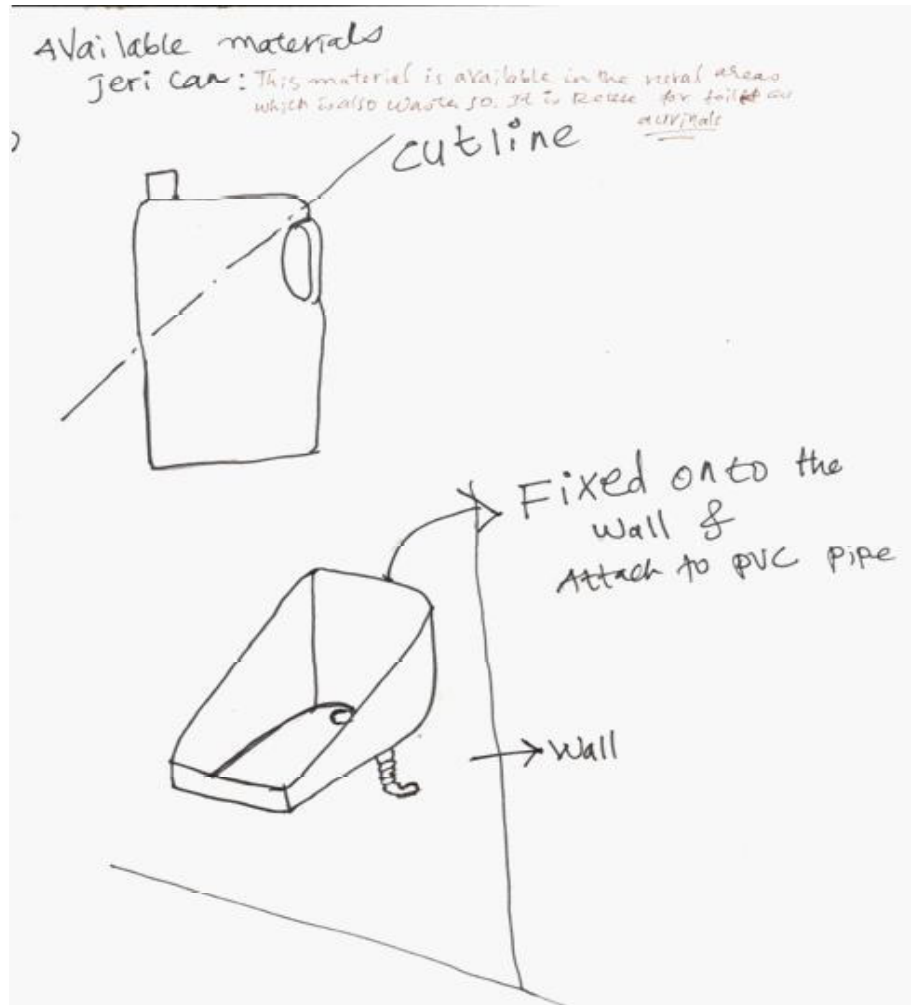 Available materials
Jeri Can: This material is available in the rural areas
which is also waste so. It is Reuse for toilet as
aurinals
cutline
Fixed onto the
wall &
Attach to PVC pipe
Wall